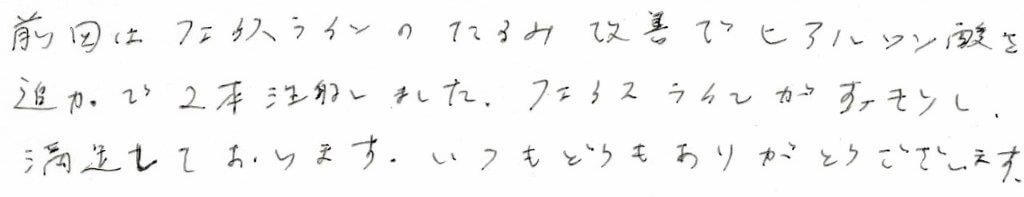 前回は フェイスラインのたるみ改善でヒアルロン酸を
追加で2本注射しました。フェイスラインがすっきりし、
満足しております。いつもどうもありがとうございます。